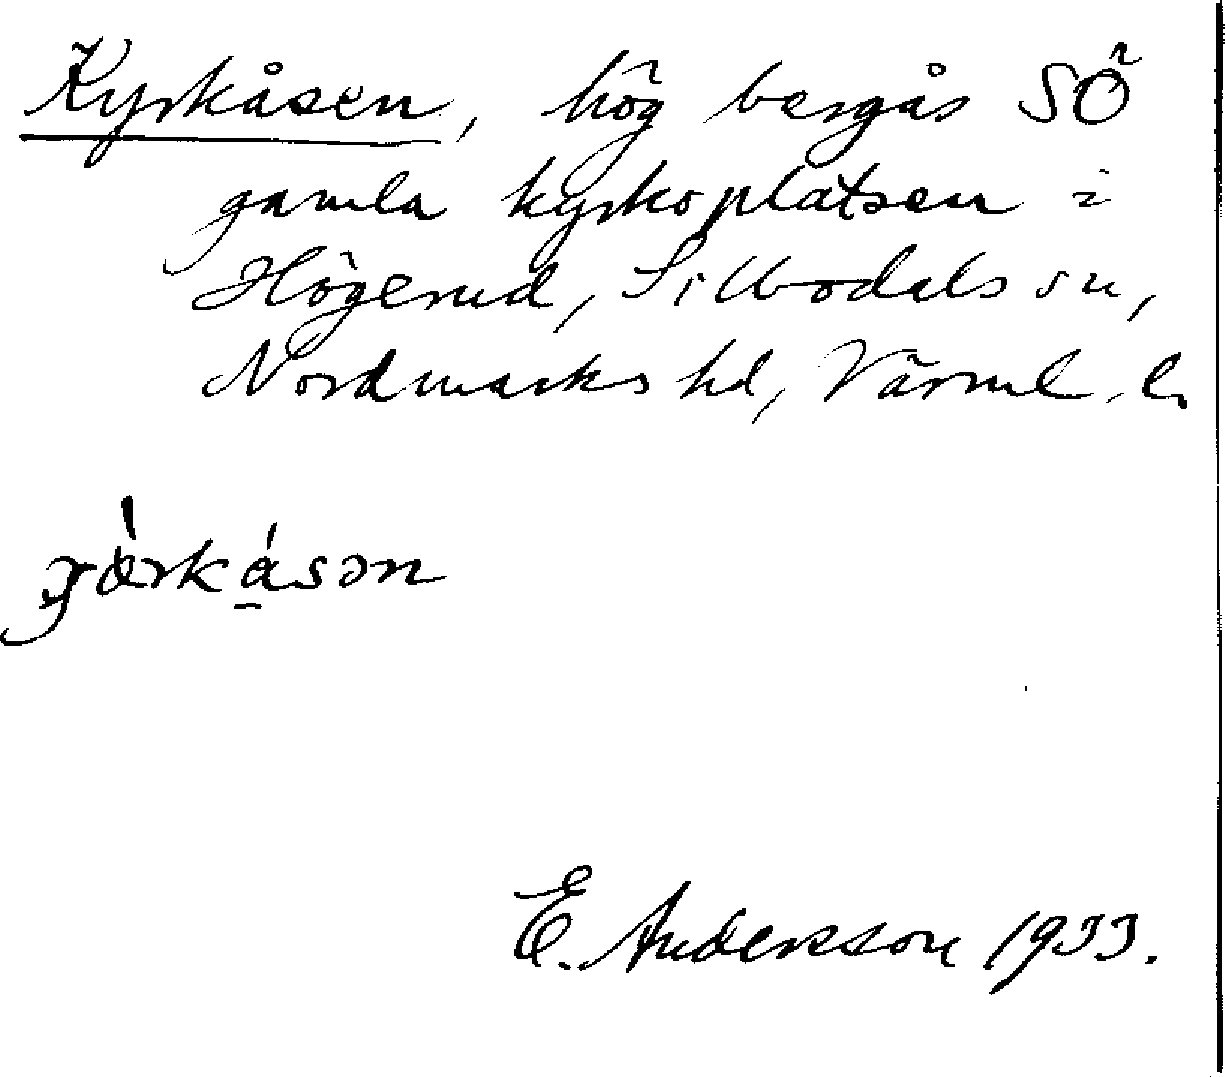 Kyrkåsen, hög bergås SÖ
gamla kyrkoplatsen i
Högerud, Silbodals sn,
Nordmarks hd, Värml. l.
E. Andersson 1933.